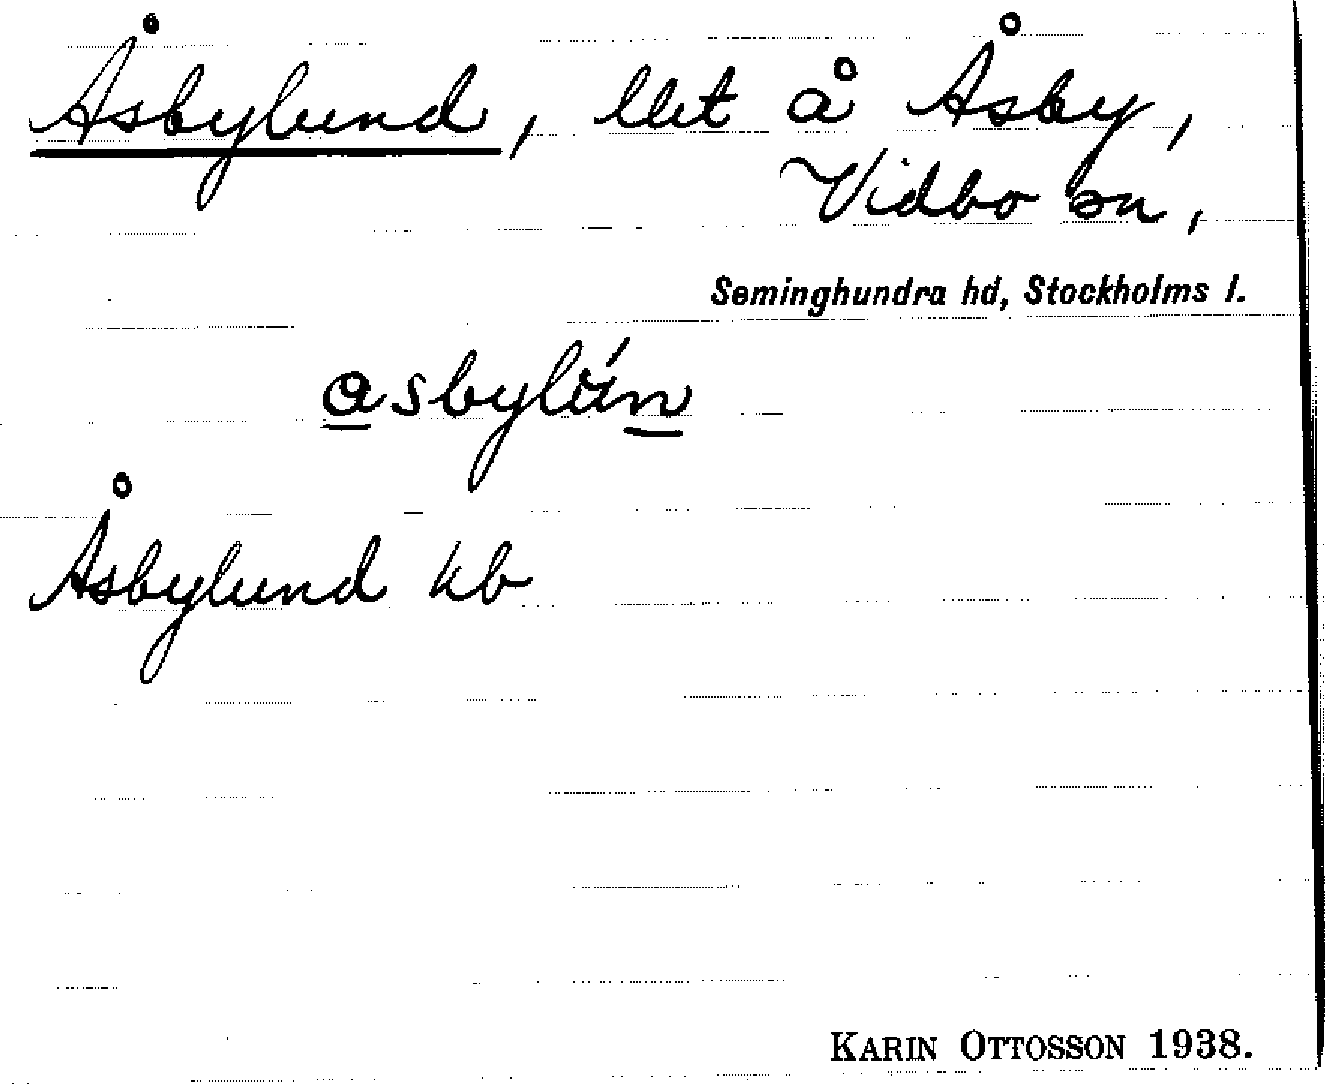 Åsbylund, llet å Åsby,
Vidbo sn,
Seminghundra hd, Stockholms l.
Åsbylund kb
KARIN OTTOSSON 1938.